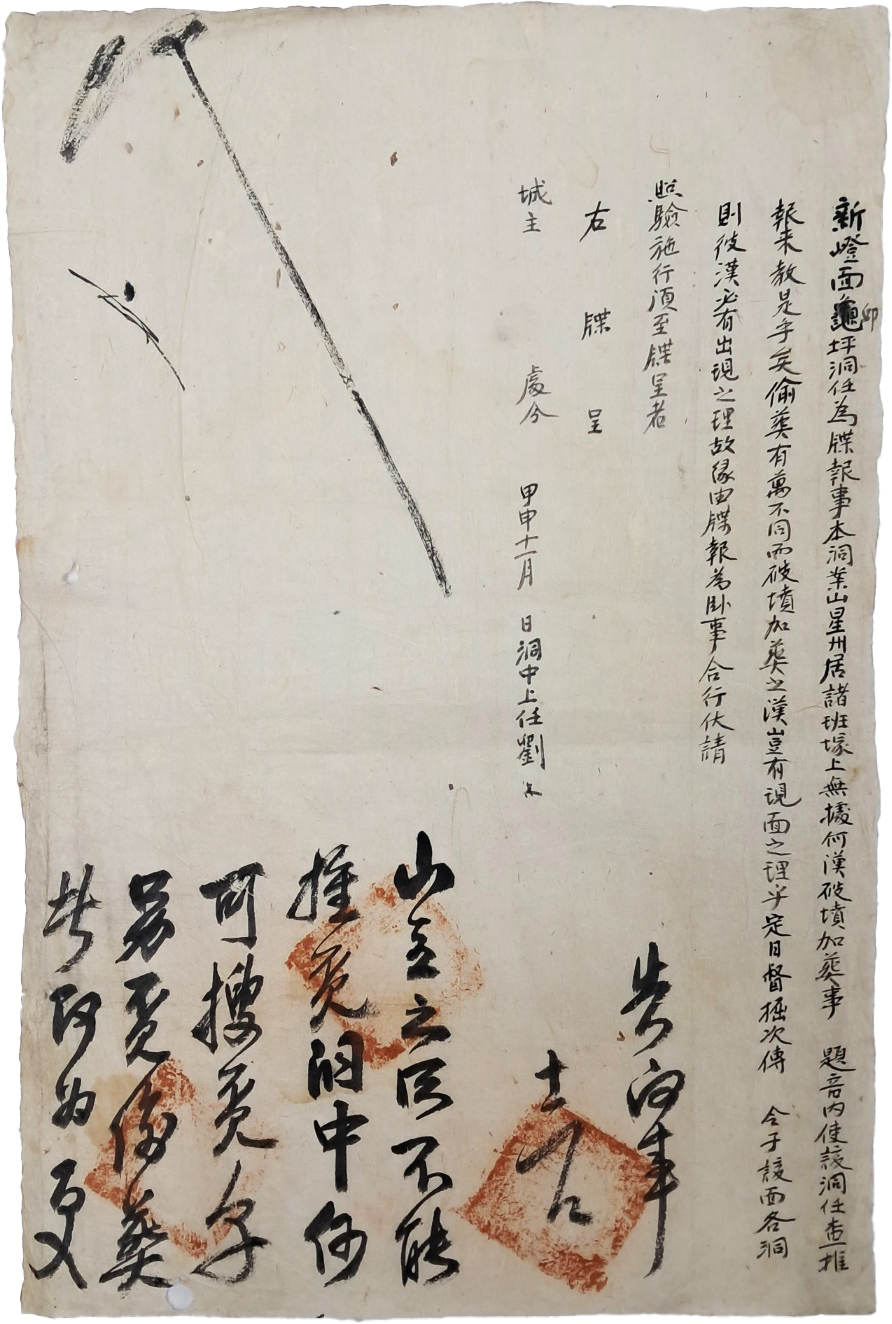 新燈面龜坪洞任為牒報事本洞案山星州居諸班塚上無據何漢破墳加葬事 題音內使該洞任查推
卽
報来教是乎矣偷葬有萬不同而破墳加葬之漢豈有現面之理乎定日督掘次傳 令于該面各洞
則彼漢必有出現之理故緣由牒報為卧事合行伏請
照驗施行須至牒呈者
右 牒 呈
城主 處分
甲申十一月 日洞中上任劉
告的事
十
山主之
不能
推覓洞中何
可搜覓
覓偷葬